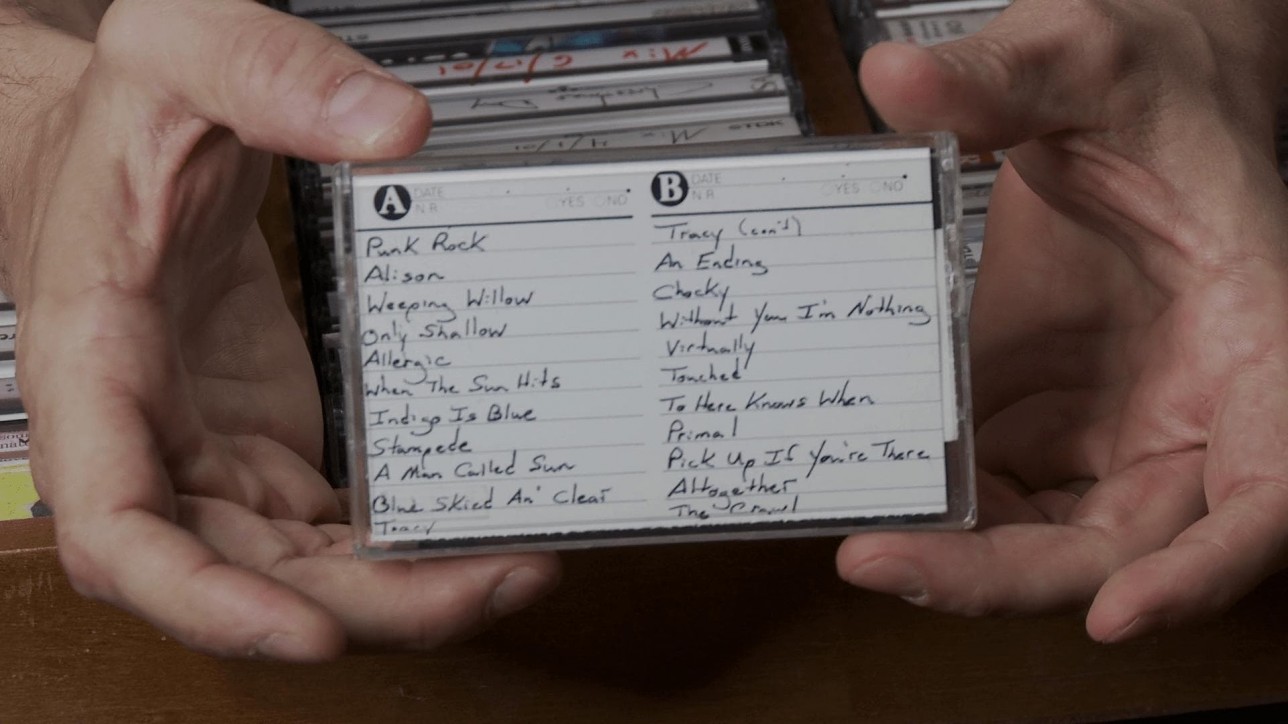 Mix 6/17/01
Mix 4/1/01
TDK
A
DATE
N.R.
YES NO
Punk Rock
Alison
Weeping Willow
Only Shallow
Allergic
When The Sun Hits
Indigo Is Blue
Stampede
A Man Called Sun
Blue Skied An' Clear
Tracy
B
DATE
N.R.
YES NO
Tracy (con't)
An Ending
Chocky
Without You I'm Nothing
Virtually
Touched
To Here Knows When
Primal
Pick Up If You're There
Altogether
The Crawl